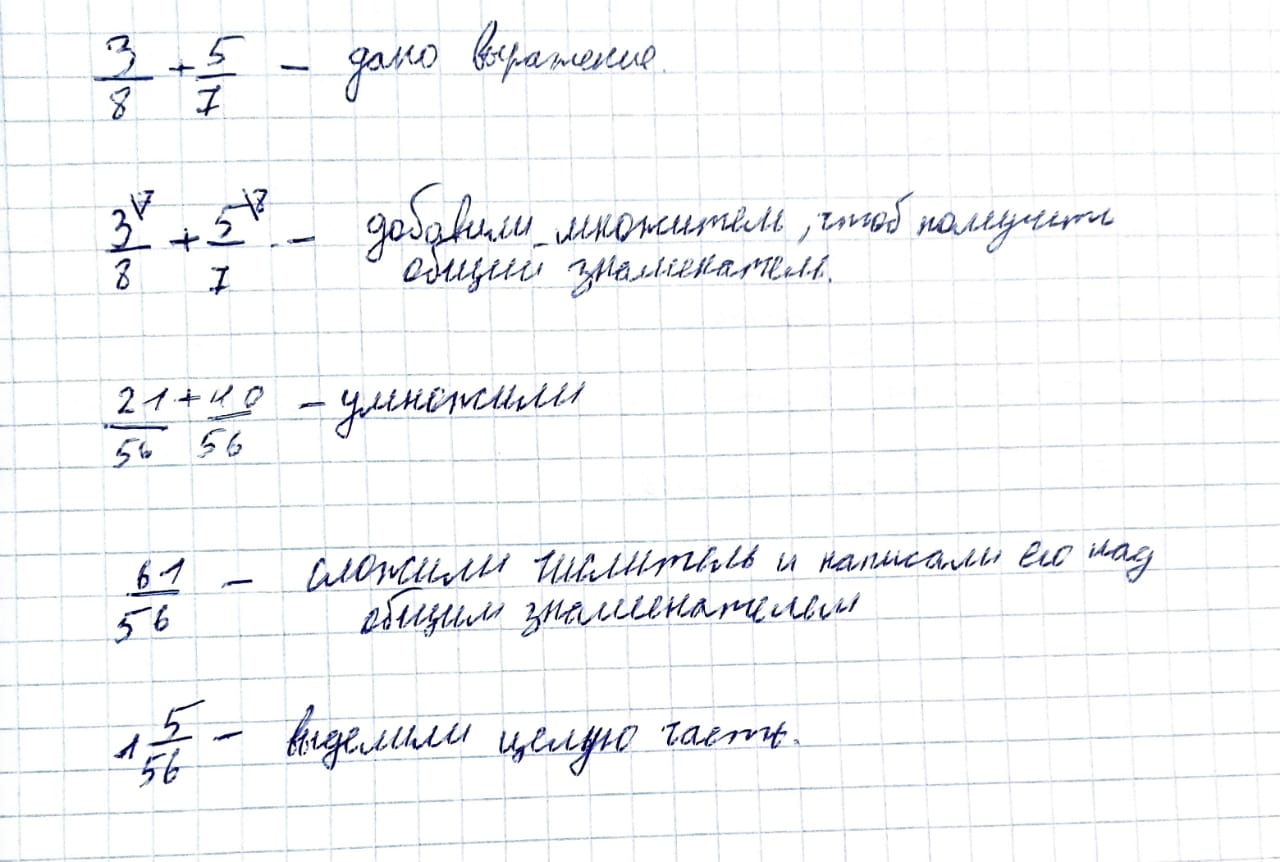 3/8 + 5/7 — дано выражение.
3\7/8 + 5\8/7 — добавили множитель, чтоб получить
общий знаменатель.
21/56 + 40/56 — умножили
61/56 — сложили числитель и написали его над
общим знаменателем
1 5/56 — выделили целую часть.